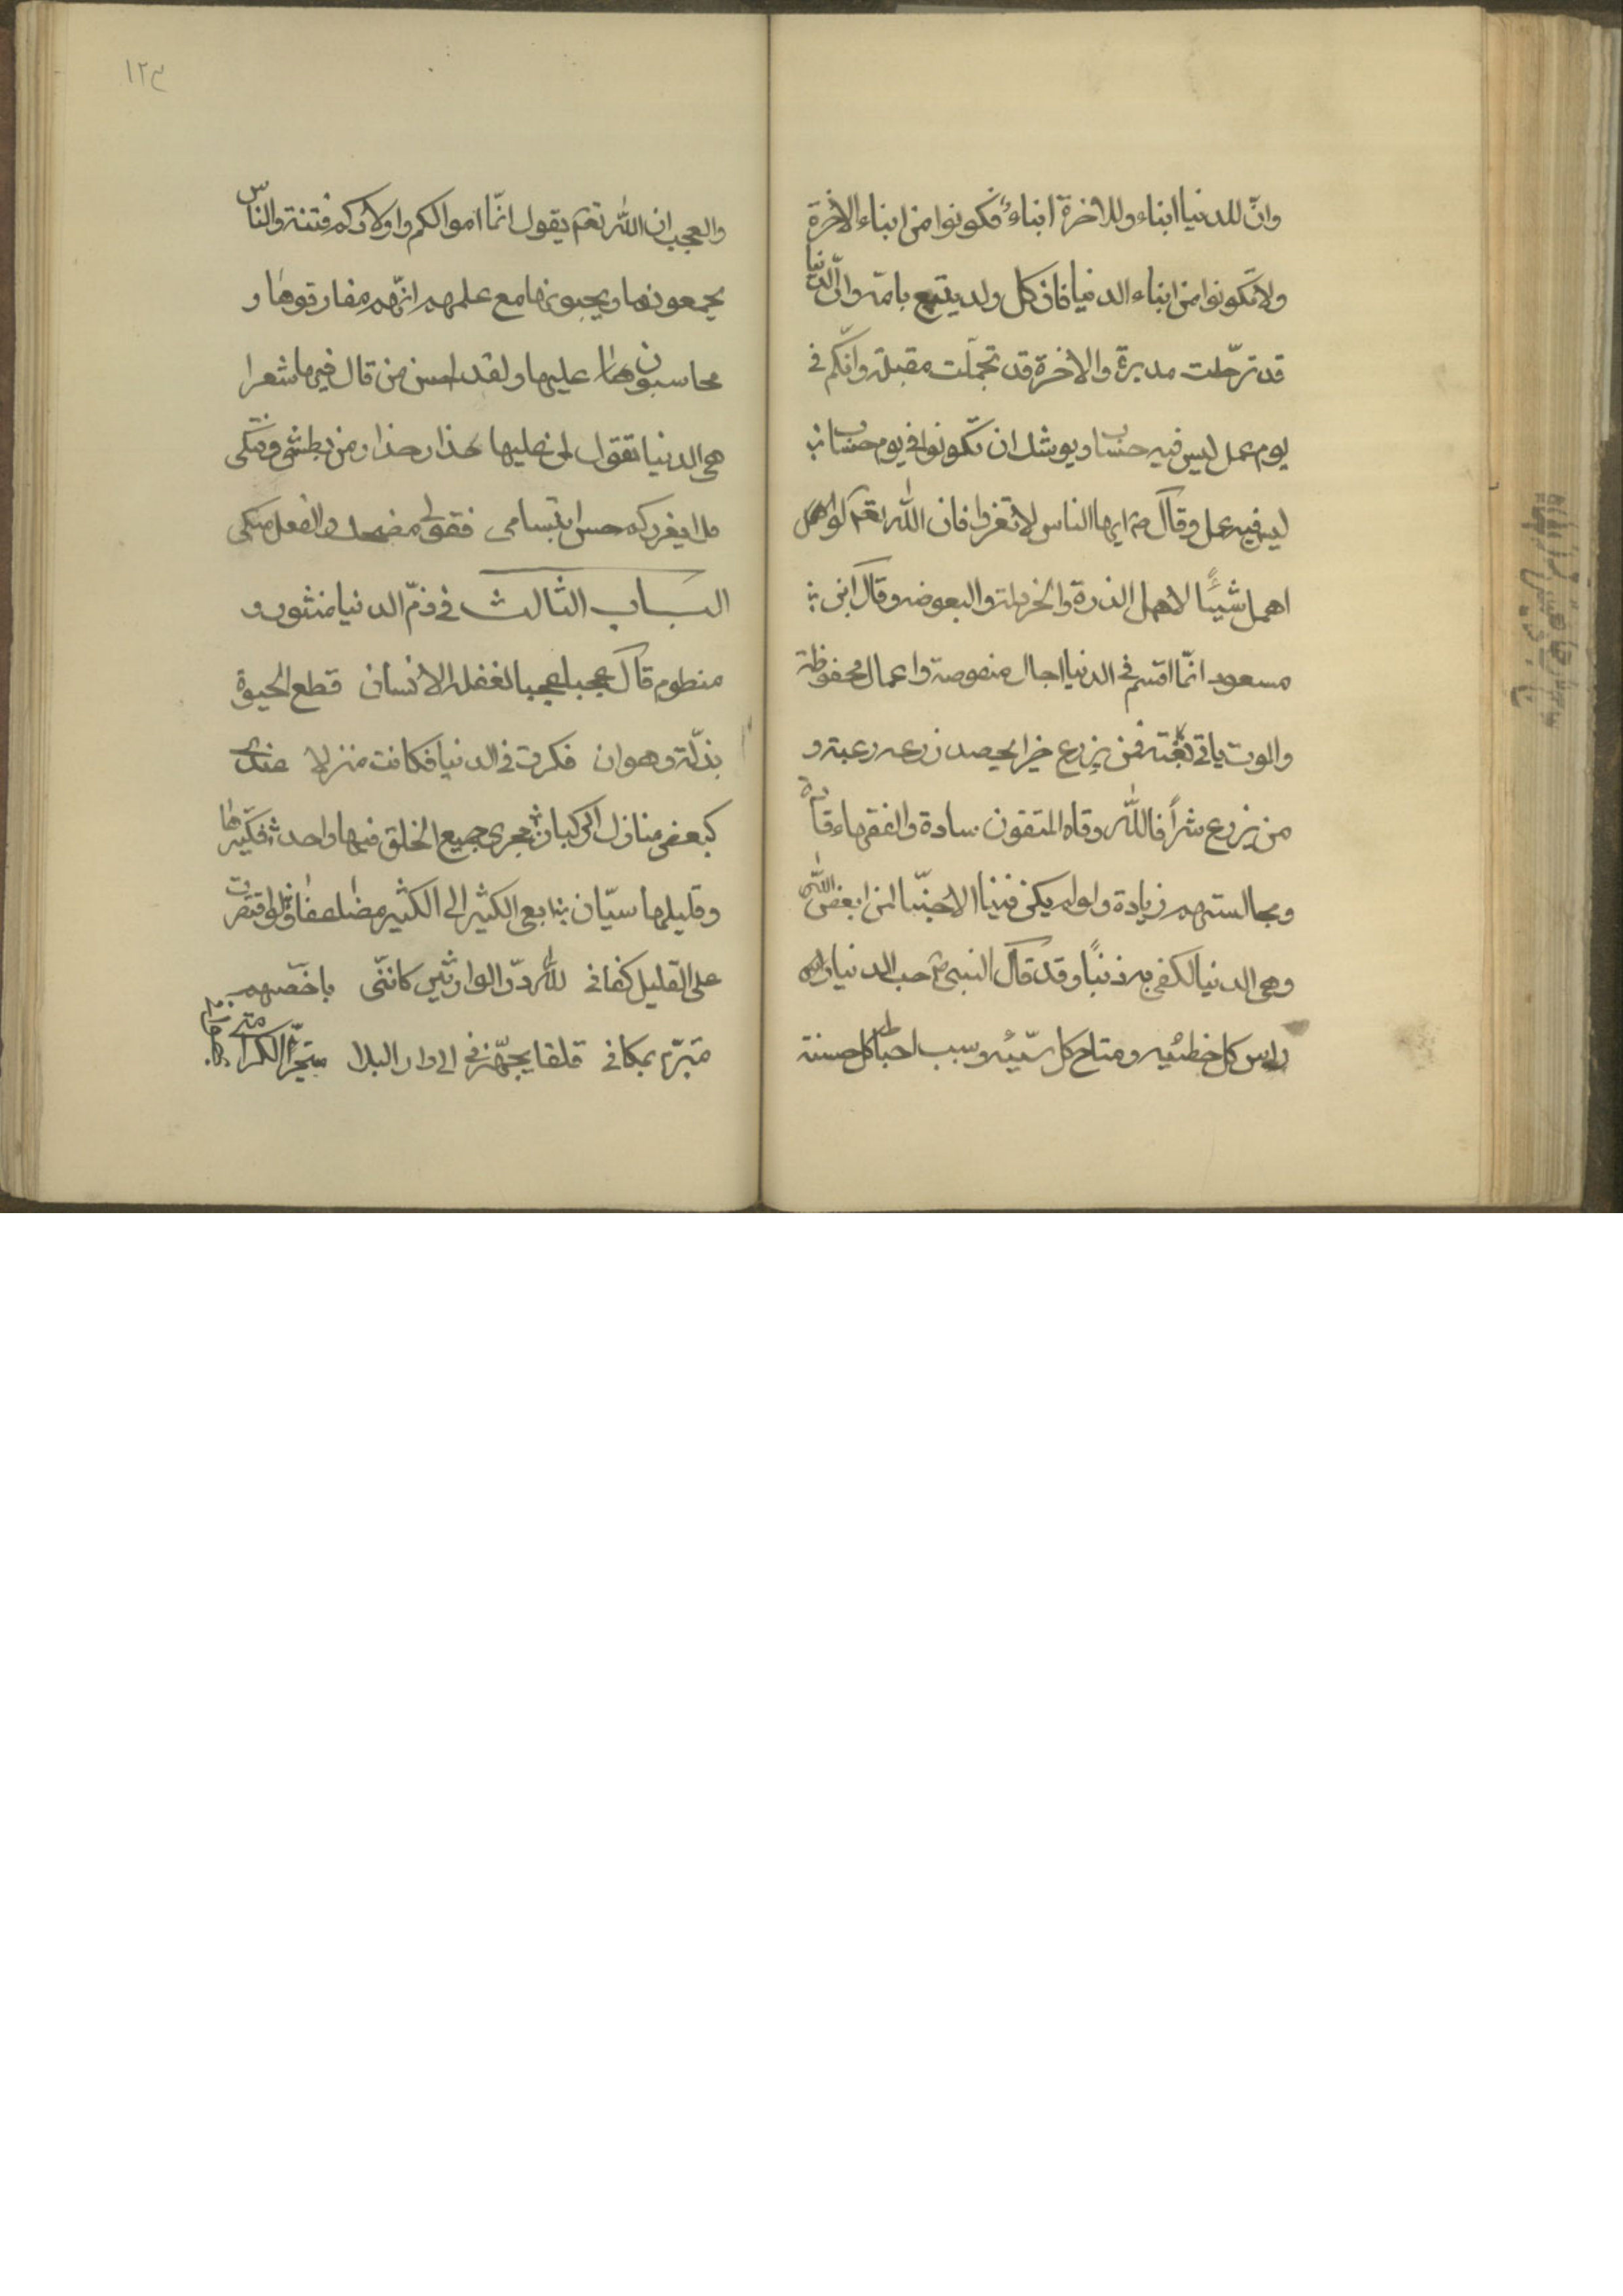 وانّ للدنيا ابناء وللاخرة ابناءُ فكونوا من ابناء الاخرة
ولا تكونوا من ابناء الدنيا فان كل ولد يتبع بامه وانّ الدنيا
قد ترحّلت مدبرة والاخرة قد تجملت مقبلة وانّكم في
يوم عمل ليس فيه حساب ويوشك ان تكونوا في يوم حساب
ليس فيه عمل وقال ايها الناس لا تغتروا فان الله تعم لو اهمل
اهمل شيئًا لاهمل الذرة والخردلة والبعوضه وقال ابن
مسعود انّما اقسم في الدنيا اجال منصوصة واعمال محفوظة
والموت ياتي بغتة فمن يزرع خيرا يحصد زرعه رغبته و
من يزرع شراً فالله وقاه المتقون سادة والفقهاء قادة
ومجالستهم زيادة ولو لم يكن فينا الا حبّنا لمن ابغض الله
وهي الدنيا لكفى به ذنبًا وقد قال النبي ص حب الدنيا راس
راس كل خطئيه ومفتاح كل سيّئه وسبب احباط كل حسنة
١٢٣
والعجب ان الله تعم يقول انّما اموالكم واولادكم فتنة والناس
يجمعونها ويحبونها مع علمهم انّهم مفارقوها و
محاسبون عليها ولقد احسن من قال فيها شعرا
هي الدنيا تقول لمن عليها حذار حذار من بطشي وفتكي
فلا يغرركم حسن ابتسامى فقولى مضحك والفعل مبكى
البـاب الثالث في ذمّ الدنيا منثور و
منظوم قال عجبا عجبا لغفلة الانسان قطع الحيوة
بذلّة وهوان فكرت في الدنيا فكانت منزلا عندى
كبعض منازل الركبان مجرى جميع الخلق فيها واحد فكثيرها
وقليلها سيّان ابغي الكثير الى الكثير مضاعفا ولو اقتصرت
على القليل كفاني لله درّ الوارثين كانّنى باخصّهم
متبرّم بمكاني قلقا يجهّزني الى دار البلا متحرّيا لكرامتى